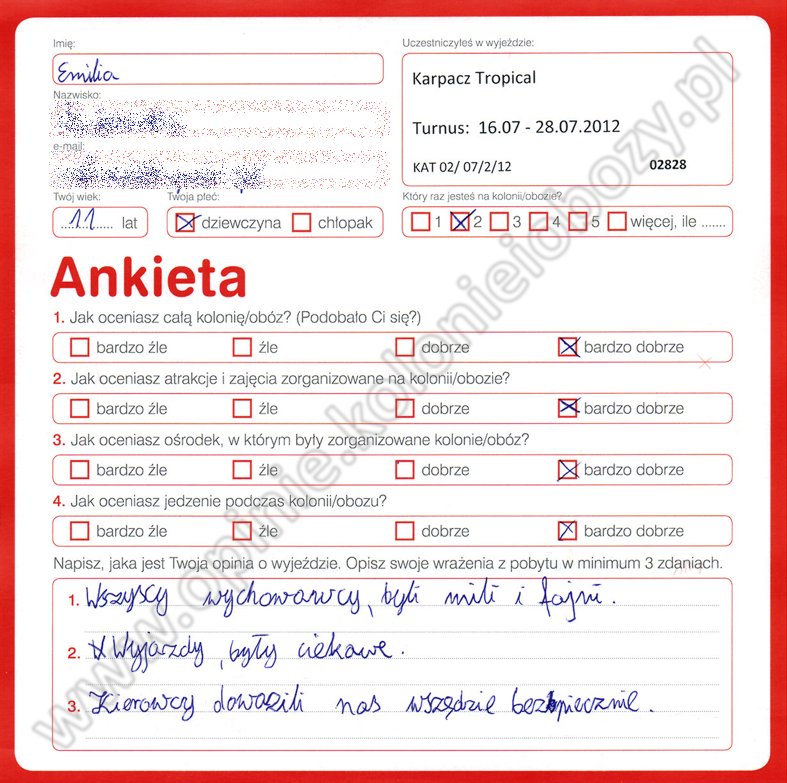 Imię:
Emilia
Uczestniczyłeś w wyjeździe:
Karpacz Tropical
Turnus: 16.07 - 28.07.2012
KAT 02/ 07/2/12 02828
Nazwisko:
e-mail:
Twój wiek:
11 lat
Twoja płeć:
dziewczyna chłopak
Który raz jesteś na kolonii/obozie?
1 2 3 4 5 więcej, ile .......
Ankieta
1. Jak oceniasz całą kolonię/obóz? (Podobało Ci się?)
bardzo źle źle dobrze bardzo dobrze
2. Jak oceniasz atrakcje i zajęcia zorganizowane na kolonii/obozie?
bardzo źle źle dobrze bardzo dobrze
3. Jak oceniasz ośrodek, w którym były zorganizowane kolonie/obóz?
bardzo źle źle dobrze bardzo dobrze
4. Jak oceniasz jedzenie podczas kolonii/obozu?
bardzo źle źle dobrze bardzo dobrze
Napisz, jaka jest Twoja opinia o wyjeździe. Opisz swoje wrażenia z pobytu w minimum 3 zdaniach.
1. Wszyscy wychowawcy, byli mili i fajni.
2. Wyjazdy, były ciekawe.
3. Kierowcy dowozili nas wszędzie bezpiecznie.
www.opinie.kolonieiobozy.pl